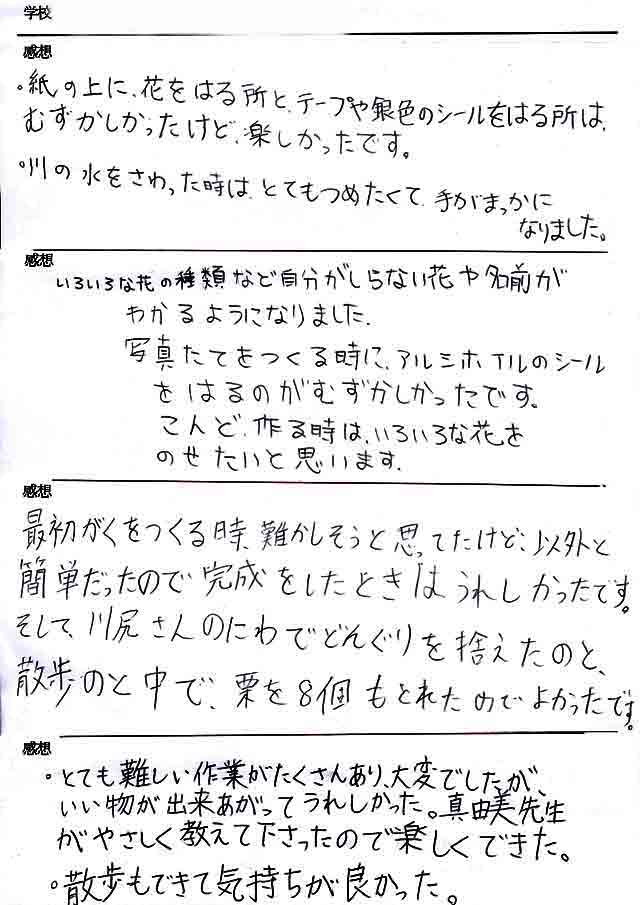 学校
感想
・紙の上に、花をはる所と、テープや銀色のシールをはる所は、
むずかしかったけど、楽しかったです。
・川の水をさわった時は、とてもつめたくて、手がまっかに
なりました。
感想
いろいろな花の種類など自分がしらない花や名前が
わかるようになりました。
写真たてをつくる時に、アルミホイルのシール
をはるのがむずかしかったです。
こんど、作る時は、いろいろな花を
のせたいと思います。
感想
最初がくをつくる時、難かしそうと思ってたけど、以外と
簡単だったので完成をしたときはうれしかったです。
そして、川尻さんのにわでどんぐりを捨えたのと、
散歩のと中で、栗を8個もとれたのでよかったです。
感想
・とても難しい作業がたくさんあり、大変でしたが、
いい物が出来あがってうれしかった。真由美先生
がやさしく教えて下さったので楽しくできた。
・散歩もできて気持ちが良かった。